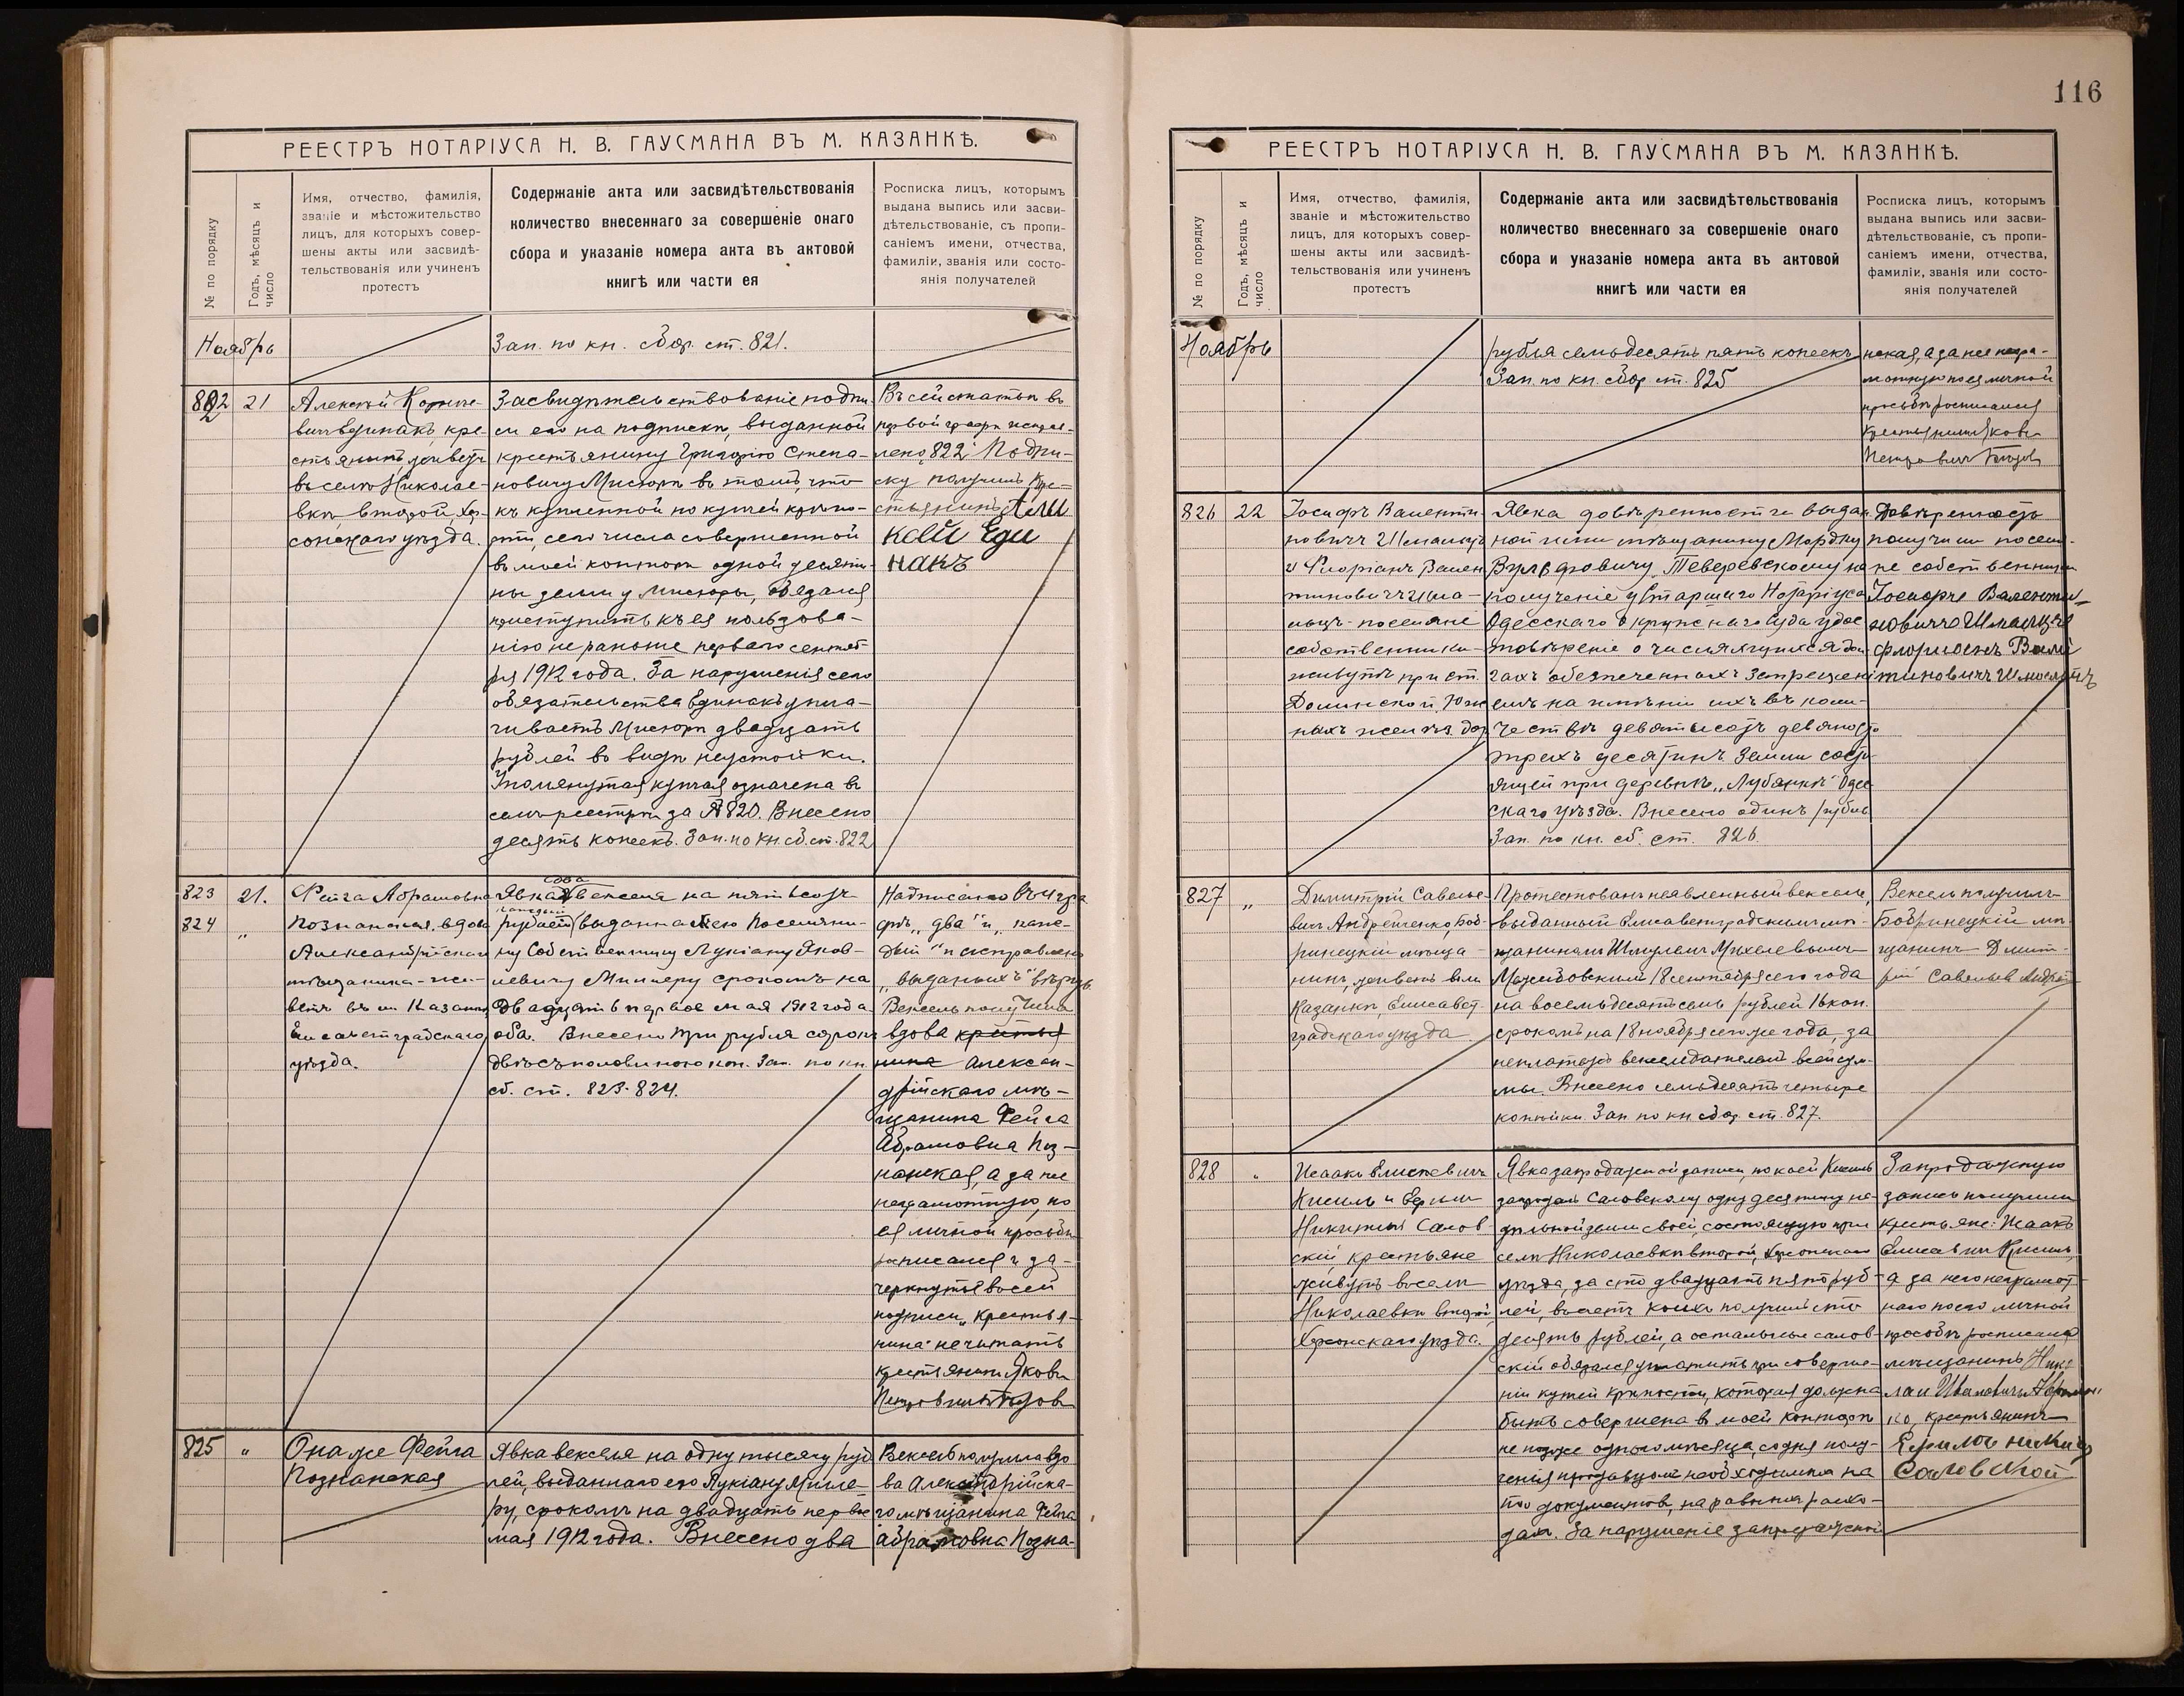 РЕЕСТРЪ НОТАРІУСА Н. В. ГАУСМАНА ВЪ М. КАЗАНКѢ.
№ по порядку
Годъ, мѣсяцъ и число
Имя, отчество, фамилія,
званіе и мѣстожительство
лицъ, для которыхъ совер-
шены акты или засвидѣ-
тельствованія или учиненъ
протестъ
Содержаніе акта или засвидѣтельствованія
количество внесеннаго за совершеніе онаго
сбора и указаніе номера акта въ актовой
книгѣ или части ея
Росписка лицъ, которымъ
выдана выпись или засви-
дѣтельствованіе, съ пропи-
саніемъ имени, отчества,
фамиліи, званія или состо-
янія получателей
Ноябрь
Зап. по кн. сбор. ст. 821.
822 21
Алексѣй
вичъ Единакъ, кре-
стьянинъ, живетъ
въ селѣ Николае-
вкѣ второй, Хер-
сонскаго уѣзда.
Засвидѣтельствованіе подпи-
си его на подпискѣ, выданной
крестьянину Григорію Степа-
новичу Мисюрѣ въ томъ, что
къ купленной по купчей крѣпо-
сти, сего числа совершенной
въ моей конторѣ одной десяти-
ны земли у Мисюры, обязался
приступить къ ея пользова-
нію не раньше перваго сентяб-
ря 1912 года. За нарушенія сего
обязательства Единакъ упла-
чиваетъ Мисюрѣ двадцать
рублей въ видѣ неустойки.
Упомянутая купчая означена въ
семъ реестрѣ за № 820. Внесено
десять копеекъ. Зап. по кн. сб. ст. 822
Въ сей статьѣ въ
первой графѣ исправ-
лено „822“ Подпи-
ску получилъ кре-
стьянинъ Але
ксѣй Еди
накъ
823 21.
824 „
Фейга Абрамовна
Познанская, вдова
Александрійскаго
мѣщанина - жи-
ветъ въ м. Казанкѣ
Елисаветградскаго
уѣзда.
два
Явка векселя на пятьсотъ
каждый
рублей выданна ею Поселяни-
ну Собственнику Лукіану Яков-
левичу Миллеру срокомъ на
двадцать первое мая 1912 года
оба. Внесено три рубля сорокъ
двѣ съ половиною коп. Зап. по кн.
сб. ст. 823-824.
Надписано въ 4 гра
фѣ „два“ и „каж-
дый“ и исправлено
„выданныхъ“ вѣрить
Вексель получила
вдова крестья
нина Алексан-
дрійскаго мѣ-
щанина Фейга
Абрамовна Поз-
нанская, а за нее
неграмотную, по
ея личной просьбѣ
росписался и за-
черкнутыя въ сей
подписи „крестья-
нина“ не читать
крестьянинъ Яковъ
825 „
Она же Фейга
Познанская
Явка векселя на одну тысячу руб-
лей, выданнаго его Лукіану Милле-
ру, срокомъ на двадцать первое
мая 1912 года. Внесено два
Вексель получила вдо-
ва Александрійска-
го мѣщанина Фейга
Абрамовна Позна-
116
РЕЕСТРЪ НОТАРІУСА Н. В. ГАУСМАНА ВЪ М. КАЗАНКѢ.
№ по порядку
Годъ, мѣсяцъ и число
Имя, отчество, фамилія,
званіе и мѣстожительство
лицъ, для которыхъ совер-
шены акты или засвидѣ-
тельствованія или учиненъ
протестъ
Содержаніе акта или засвидѣтельствованія
количество внесеннаго за совершеніе онаго
сбора и указаніе номера акта въ актовой
книгѣ или части ея
Росписка лицъ, которымъ
выдана выпись или засви-
дѣтельствованіе, съ пропи-
саніемъ имени, отчества,
фамиліи, званія или состо-
янія получателей
Ноябрь
рубля семьдесятъ пять копеекъ
Зап. по кн. сбор. ст. 825
нская, а за нее негра-
мотную по ея личной
просьбѣ росписался
крестьянинъ Яковъ
Петровичъ
826 22
Іосифъ Валенти
новичъ Шмальцъ
и Флоріанъ Вален
тиновичъ Шма-
льцъ - поселяне
собственники
живутъ при ст.
Долинской, Юж
ныхъ желѣз. дор.
Явка довѣренности выдан
ной ими мѣщанину Мордку
Вульфовичу Теверевскому на
полученіе у Старшаго Нотаріуса
Одесскаго Окружнаго Суда удос
товѣреніе о числящихся дол
гахъ обезпеченныхъ запрещені
емъ на имѣніи ихъ въ коли-
чествѣ девятьсотъ девяносто
трехъ десятинъ земли состо
ящей при деревнѣ „Лубянкѣ“ Одес
скаго уѣзда. Внесено одинъ рубль
Зап. по кн. сб. ст. 826.
Довѣренность
получили поселя-
не собственники
Іосифъ Валенти
новичъ Шмальцъ
Флоріанъ Вале
тиновичъ Шмальцъ
827 „
Димитрій Савелье-
вичъ Андрейченко, Боб-
ринецкій мѣща-
нинъ, живетъ въ м.
Казанкѣ, Елисавет-
градскаго уѣзда
Протестованъ неявленный вексель,
выданный Елисаветградскимъ мѣ-
щаниномъ Шмулемъ Михелевымъ
18 сентября сего года
на восемьдесятъ семь рублей 16 коп.
срокомъ на 18 ноября сего же года, за
неплатежъ векселедателемъ всей сум-
мы. Внесено семьдесятъ четыре
копѣйки. Зап. по кн. сбор. ст. 827.
Вексель получилъ
Бобринецкій мѣ-
щанинъ Дмит-
рій Савельев
828 „
Исаакъ Елисѣевичъ
Кисиль и Ефимъ
Никитинъ Салов
скій, крестьяне
живутъ въ селѣ
Николаевкѣ второй,
Херсонскаго уѣзда.
Явка запродажной записи, по коей Кисиль
запродалъ Саловскому одну десятину на-
дѣльной земли своей, состоящую при
селѣ Николаевкѣ второй, Херсонскаго
уѣзда, за сто двадцать пять руб-
лей, въ счетъ коихъ получилъ сто
десять рублей, а остальные Салов-
скій обязался уплатить при соверше-
ніи купчей крѣпости, которая должна
быть совершена въ моей конторѣ
не позже одного мѣсяца, со дня полу-
ченія продавцомъ необходимыхъ на
то документовъ, на равныхъ расхо-
дахъ. За нарушеніе запродажной
Запродажную
запись получили
крестьяне: Исаакъ
Елисѣевичъ Кисиль,
а за него неграмот-
наго по его личной
просьбѣ росписался
мѣщанинъ Нико
лай Ивановичъ
ко, крестьянинъ
Ефимъ Никит
Саловской